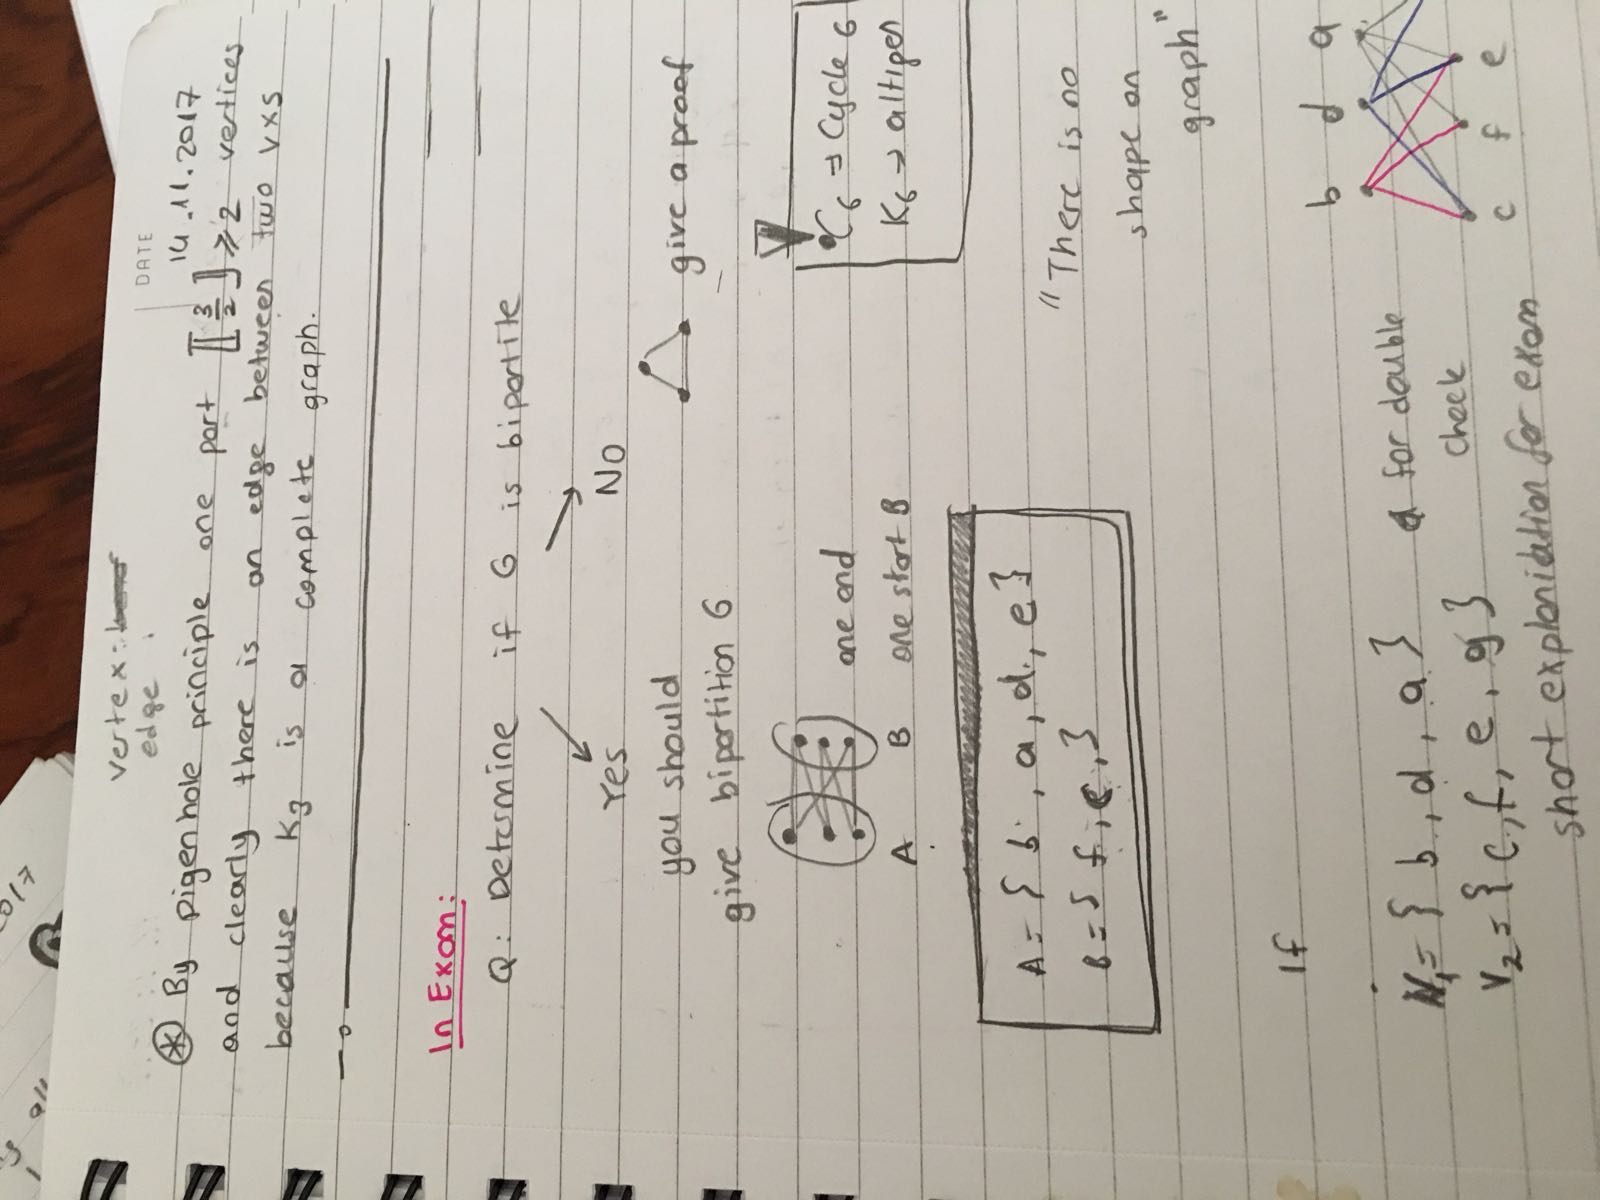 2017
all
vertex:
edge :
DATE
14.11.2017
⊛ By pigenhole principle one part ⟦3/2⟧ ⩾ 2 vertices
and clearly there is an edge between two vxs
because K3 is a complete graph.
In Exam:
Q: Determine if G is bipartite
Yes
No
you should
give a proof
give bipartition G
one end
A B one start B
C6 → Cycle 6
K6 → altıgen
A = { b, a, d, e }
B = { f, c, }
"There is no
shape on
graph"
If
V1 = { b, d, a }
for double
check
V2 = { c, f, e, g }
short explonidation for exam
b d a
c f e